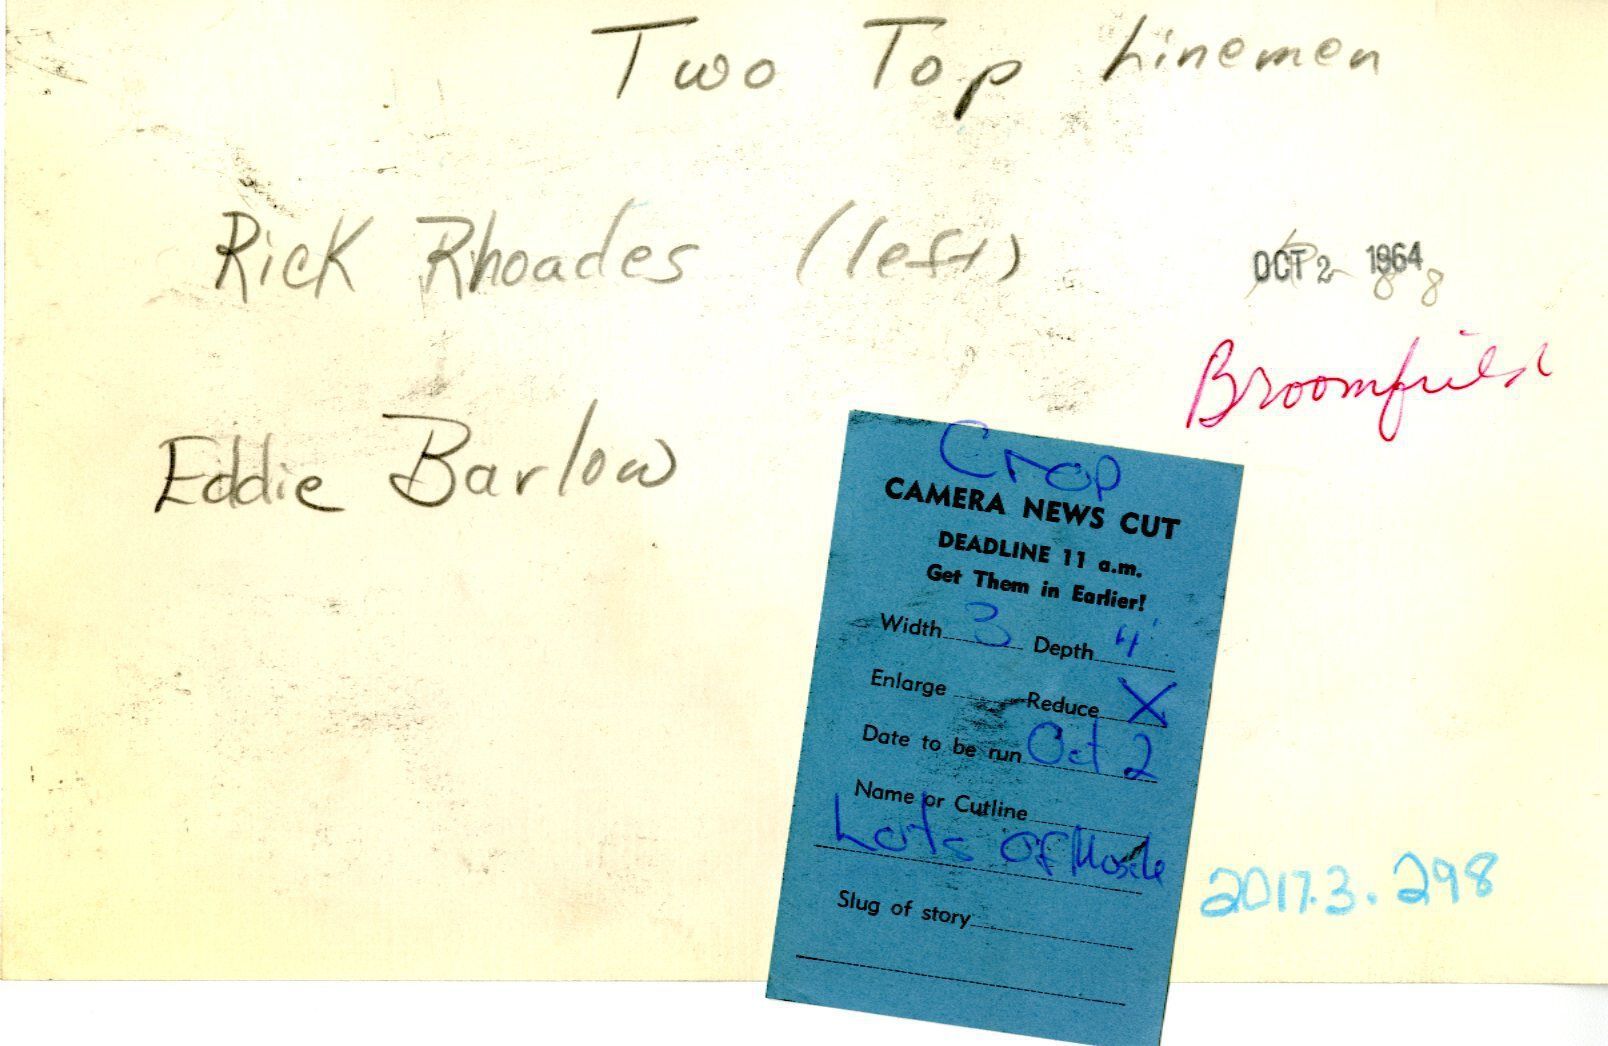 Two Top Linemen
Rick Rhoades (left)
OCT 2 1964
8 8
Broomfield
Eddie Barlow
Crop
CAMERA NEWS CUT
DEADLINE 11 a.m.
Get Them in Earlier!
Width 3 Depth 4"
Enlarge Reduce X
Date to be run Oct 2
Name or Cutline
Lots of Muscle
Slug of story
2017.3.298